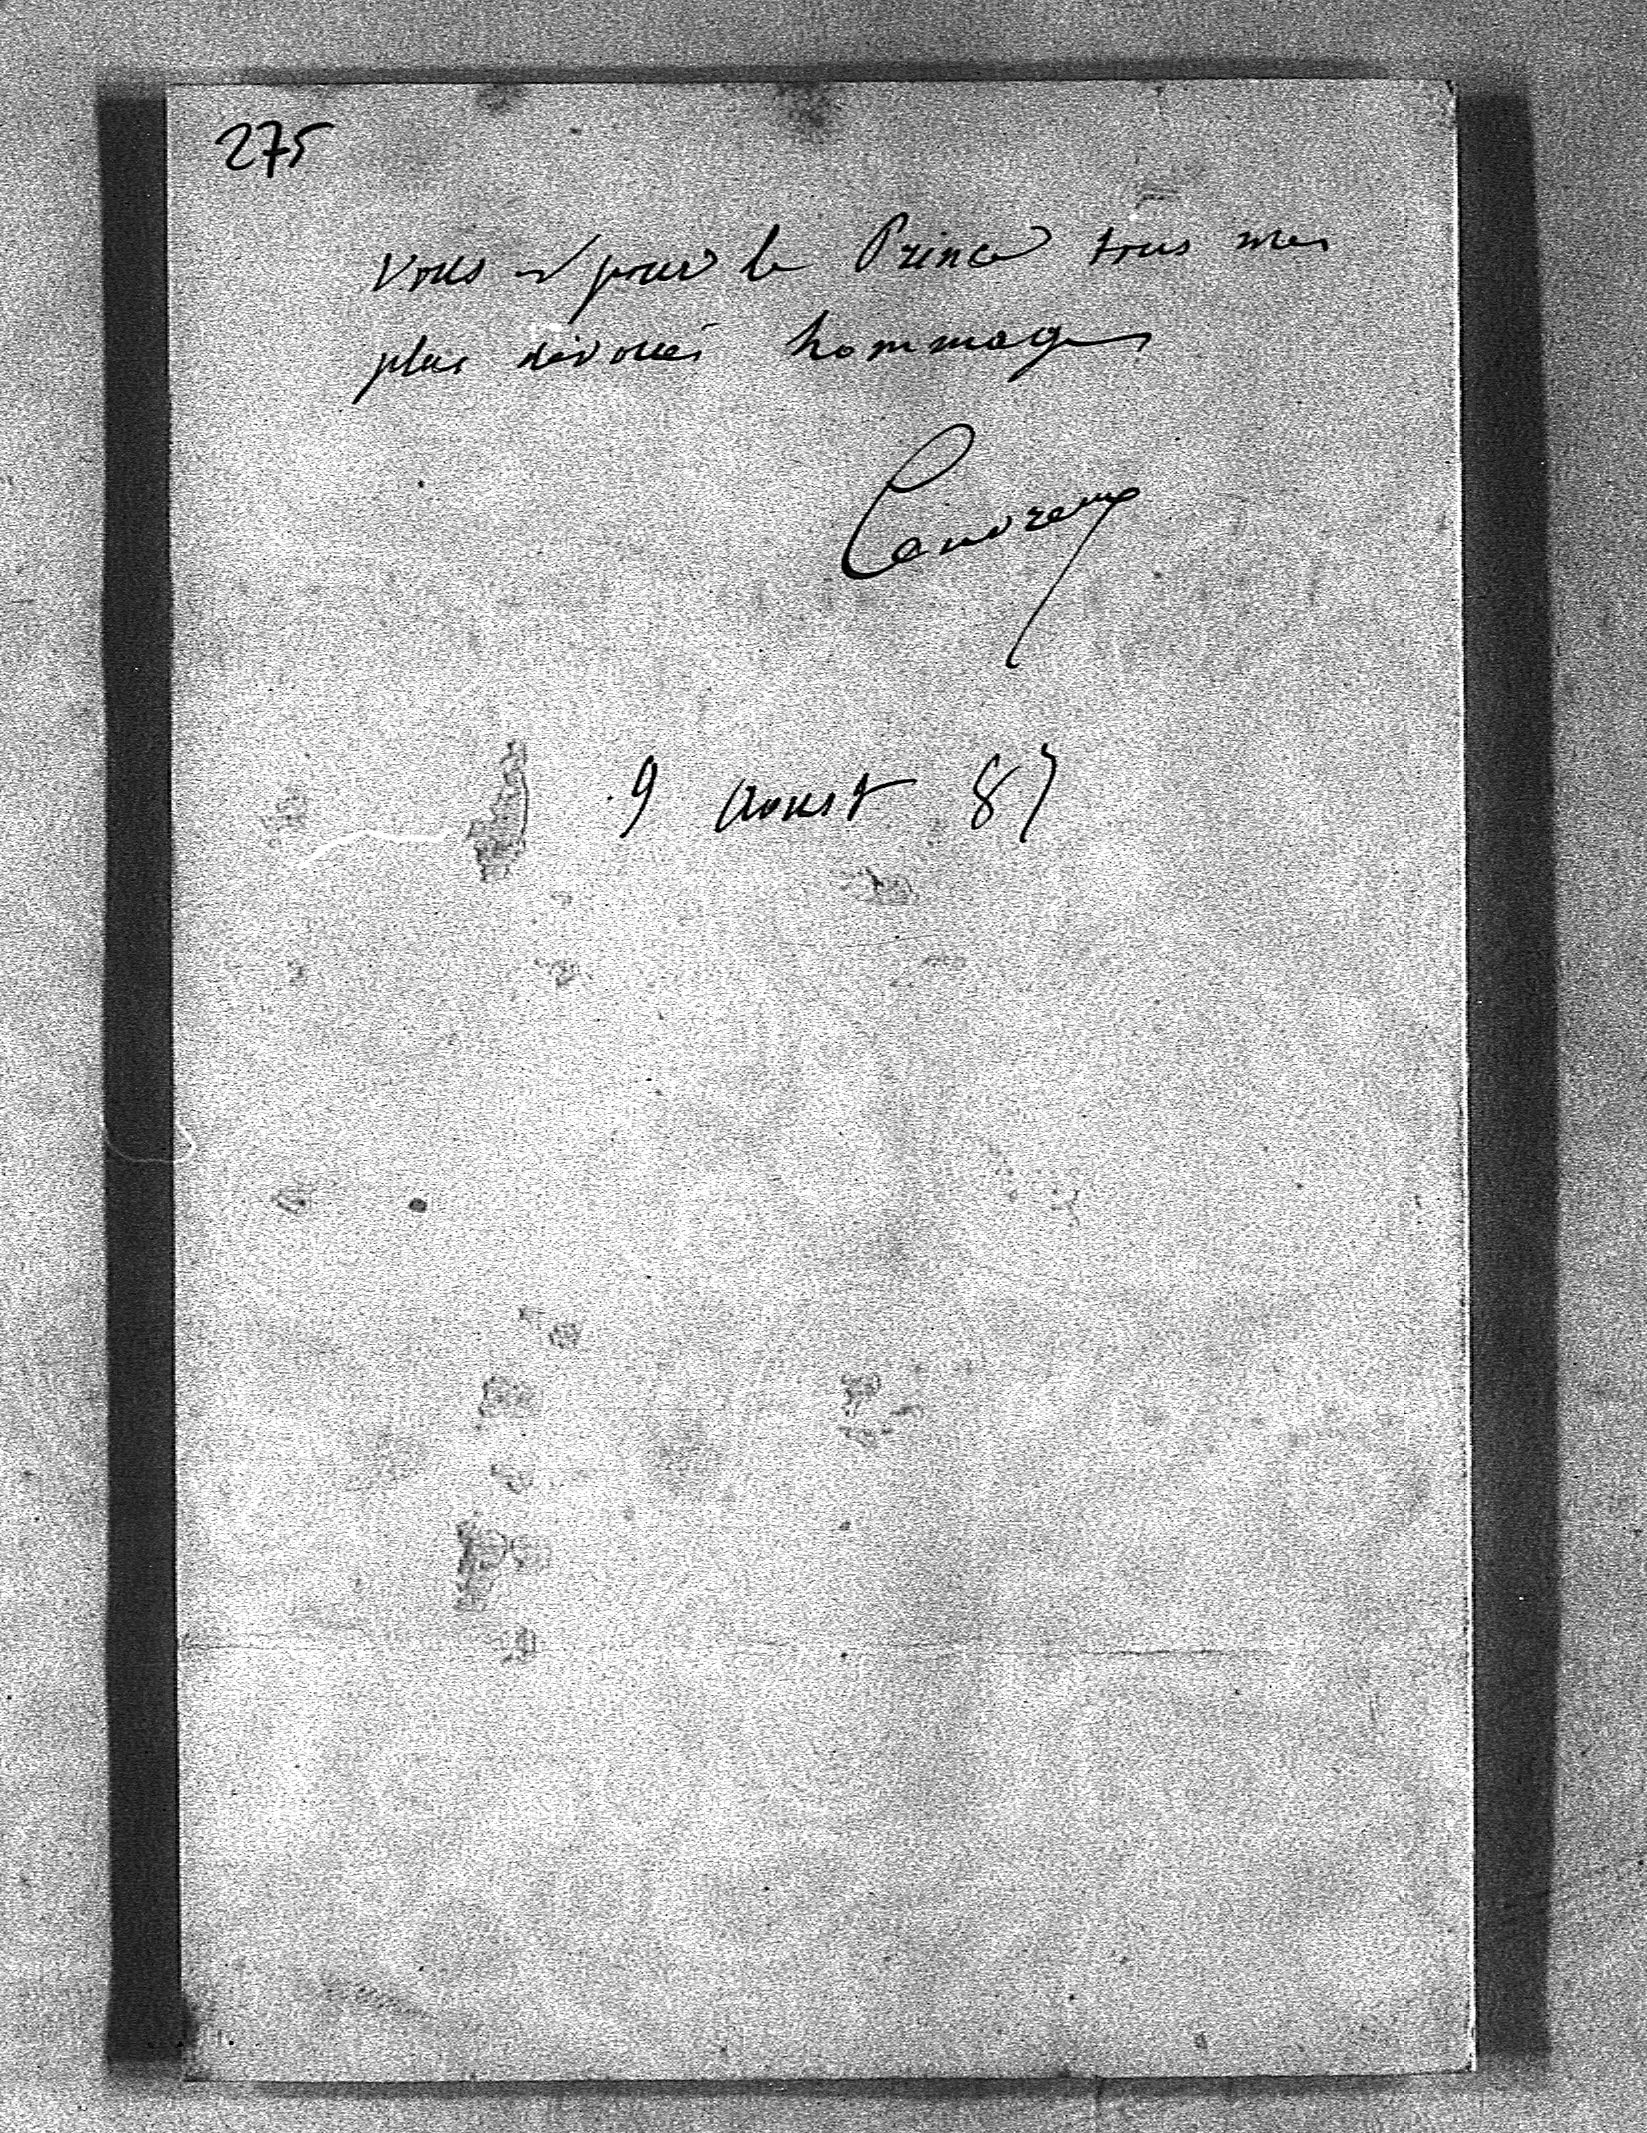 275
vous et pour le Prince tous mes
plus dévoués hommages
9 aoust 87